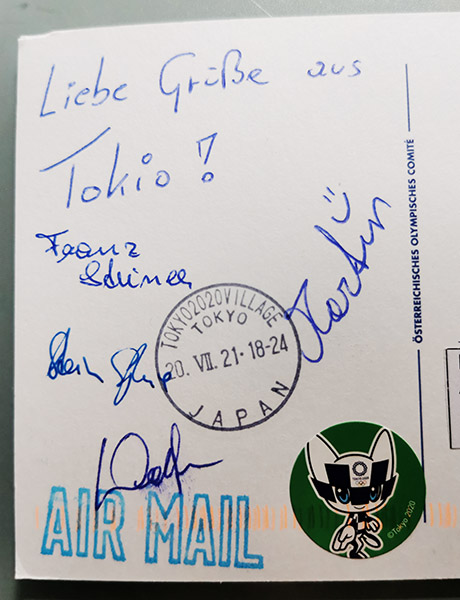 Liebe Grüße aus
Tokio!
Franz
Martin
TOKYO2020VILLAGE
TOKYO
20. VII. 21·18-24
JAPAN
AIR MAIL
ÖSTERREICHISCHES OLYMPISCHES COMITÉ
TOKYO 2020
©Tokyo 2020